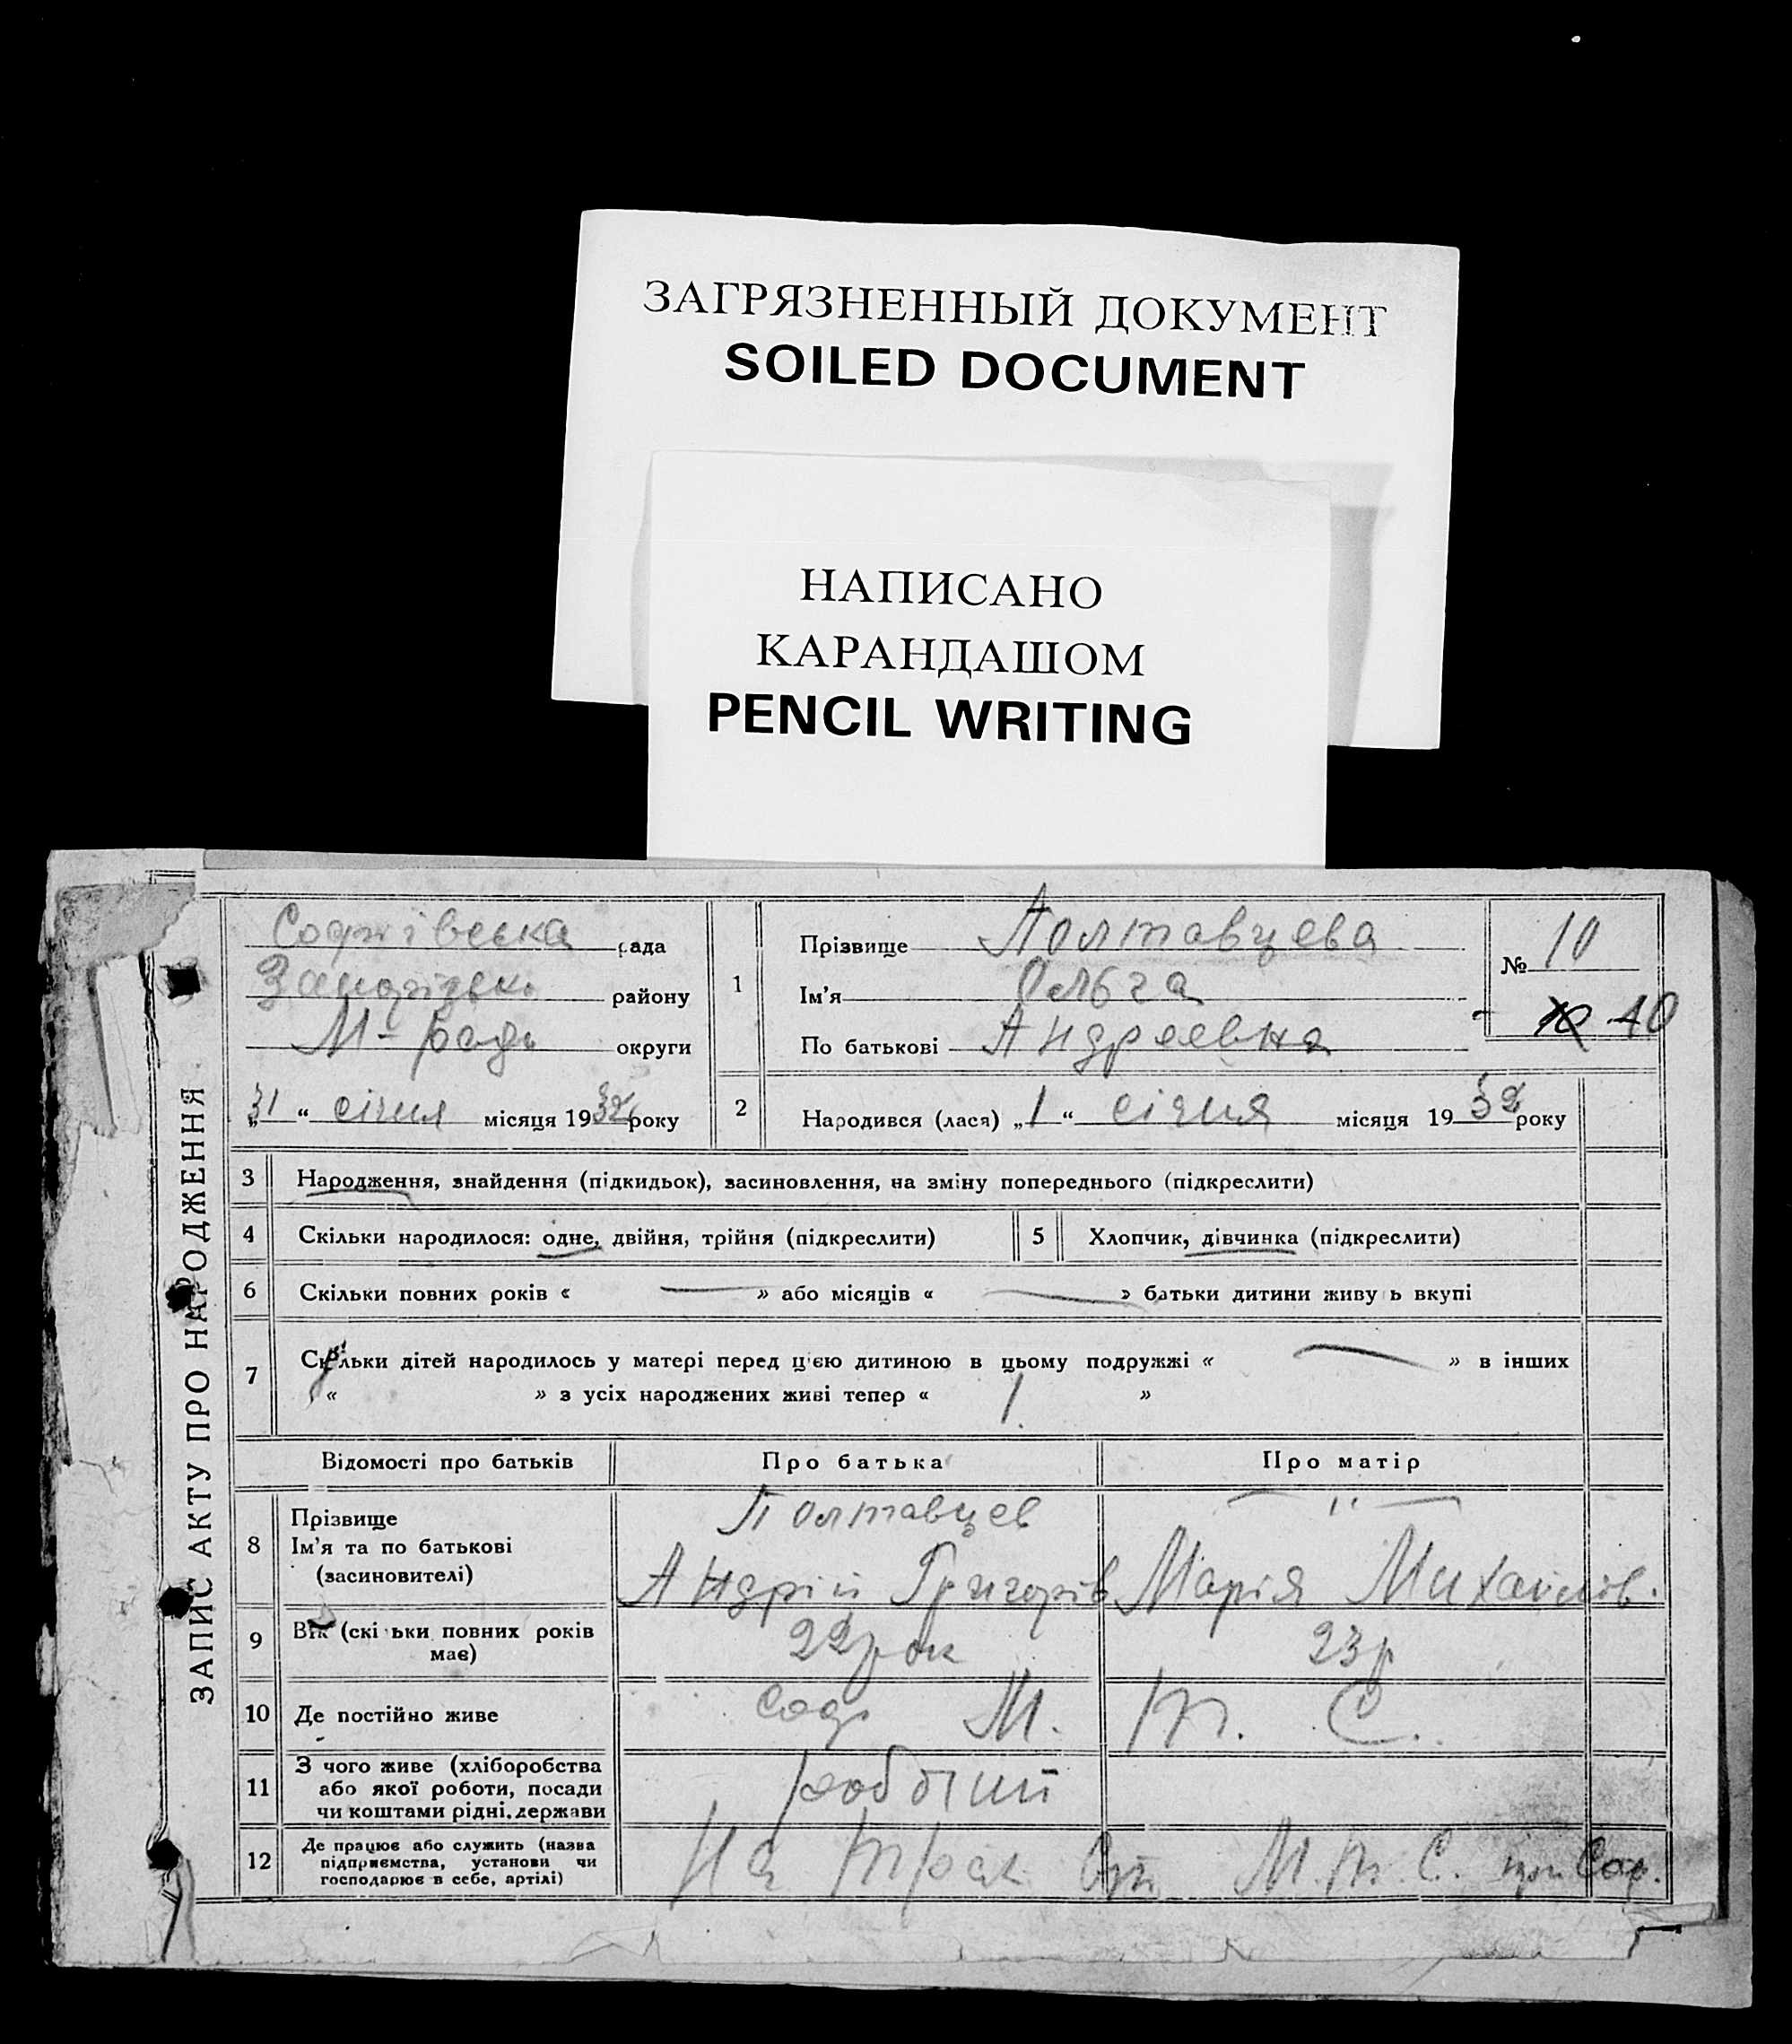 ЗАГРЯЗНЕННЫЙ ДОКУМЕНТ
SOILED DOCUMENT
НАПИСАНО
КАРАНДАШОМ
PENCIL WRITING
ЗАПИС АКТУ ПРО НАРОДЖЕННЯ
Софиівська рада
району
М- округи
„31“ січня місяця 1932 року
1
Прізвище Полтавцева
Ім'я Ольга
По батькові Андреевна
№ 10
10 10
2 Народився (лася) „1“ січня місяця 1932 року
3 Народження, знайдення (підкидьок), засиновлення, на зміну попереднього (підкреслити)
4 Скільки народилося: одне, двійня, трійня (підкреслити) 5 Хлопчик, дівчинка (підкреслити)
6 Скільки повних років « — » або місяців « — » батьки дитини живу ь вкупі
7 Скільки дітей народилось у матері перед цією дитиною в цьому подружжі « — » в інших
« » з усіх народжених живі тепер « 1 »
Відомості про батьків Про батька Про матір
8 Прізвище Полтавцев — " —
Ім'я та по батькові
(засиновителі) Андрій Григорів Марія Михайлів.
9 Вік (скі ьки повних років
має) 22 рок 23 р
10 Де постійно живе Соф М. Т. С.
11 З чого живе (хліборобства
або якої роботи, посади
чи коштами рідні, держави
12 Де працює або служить (назва
підприємства, установи чи
господарює в себе, артілі) На М. Т. С. при Соф.